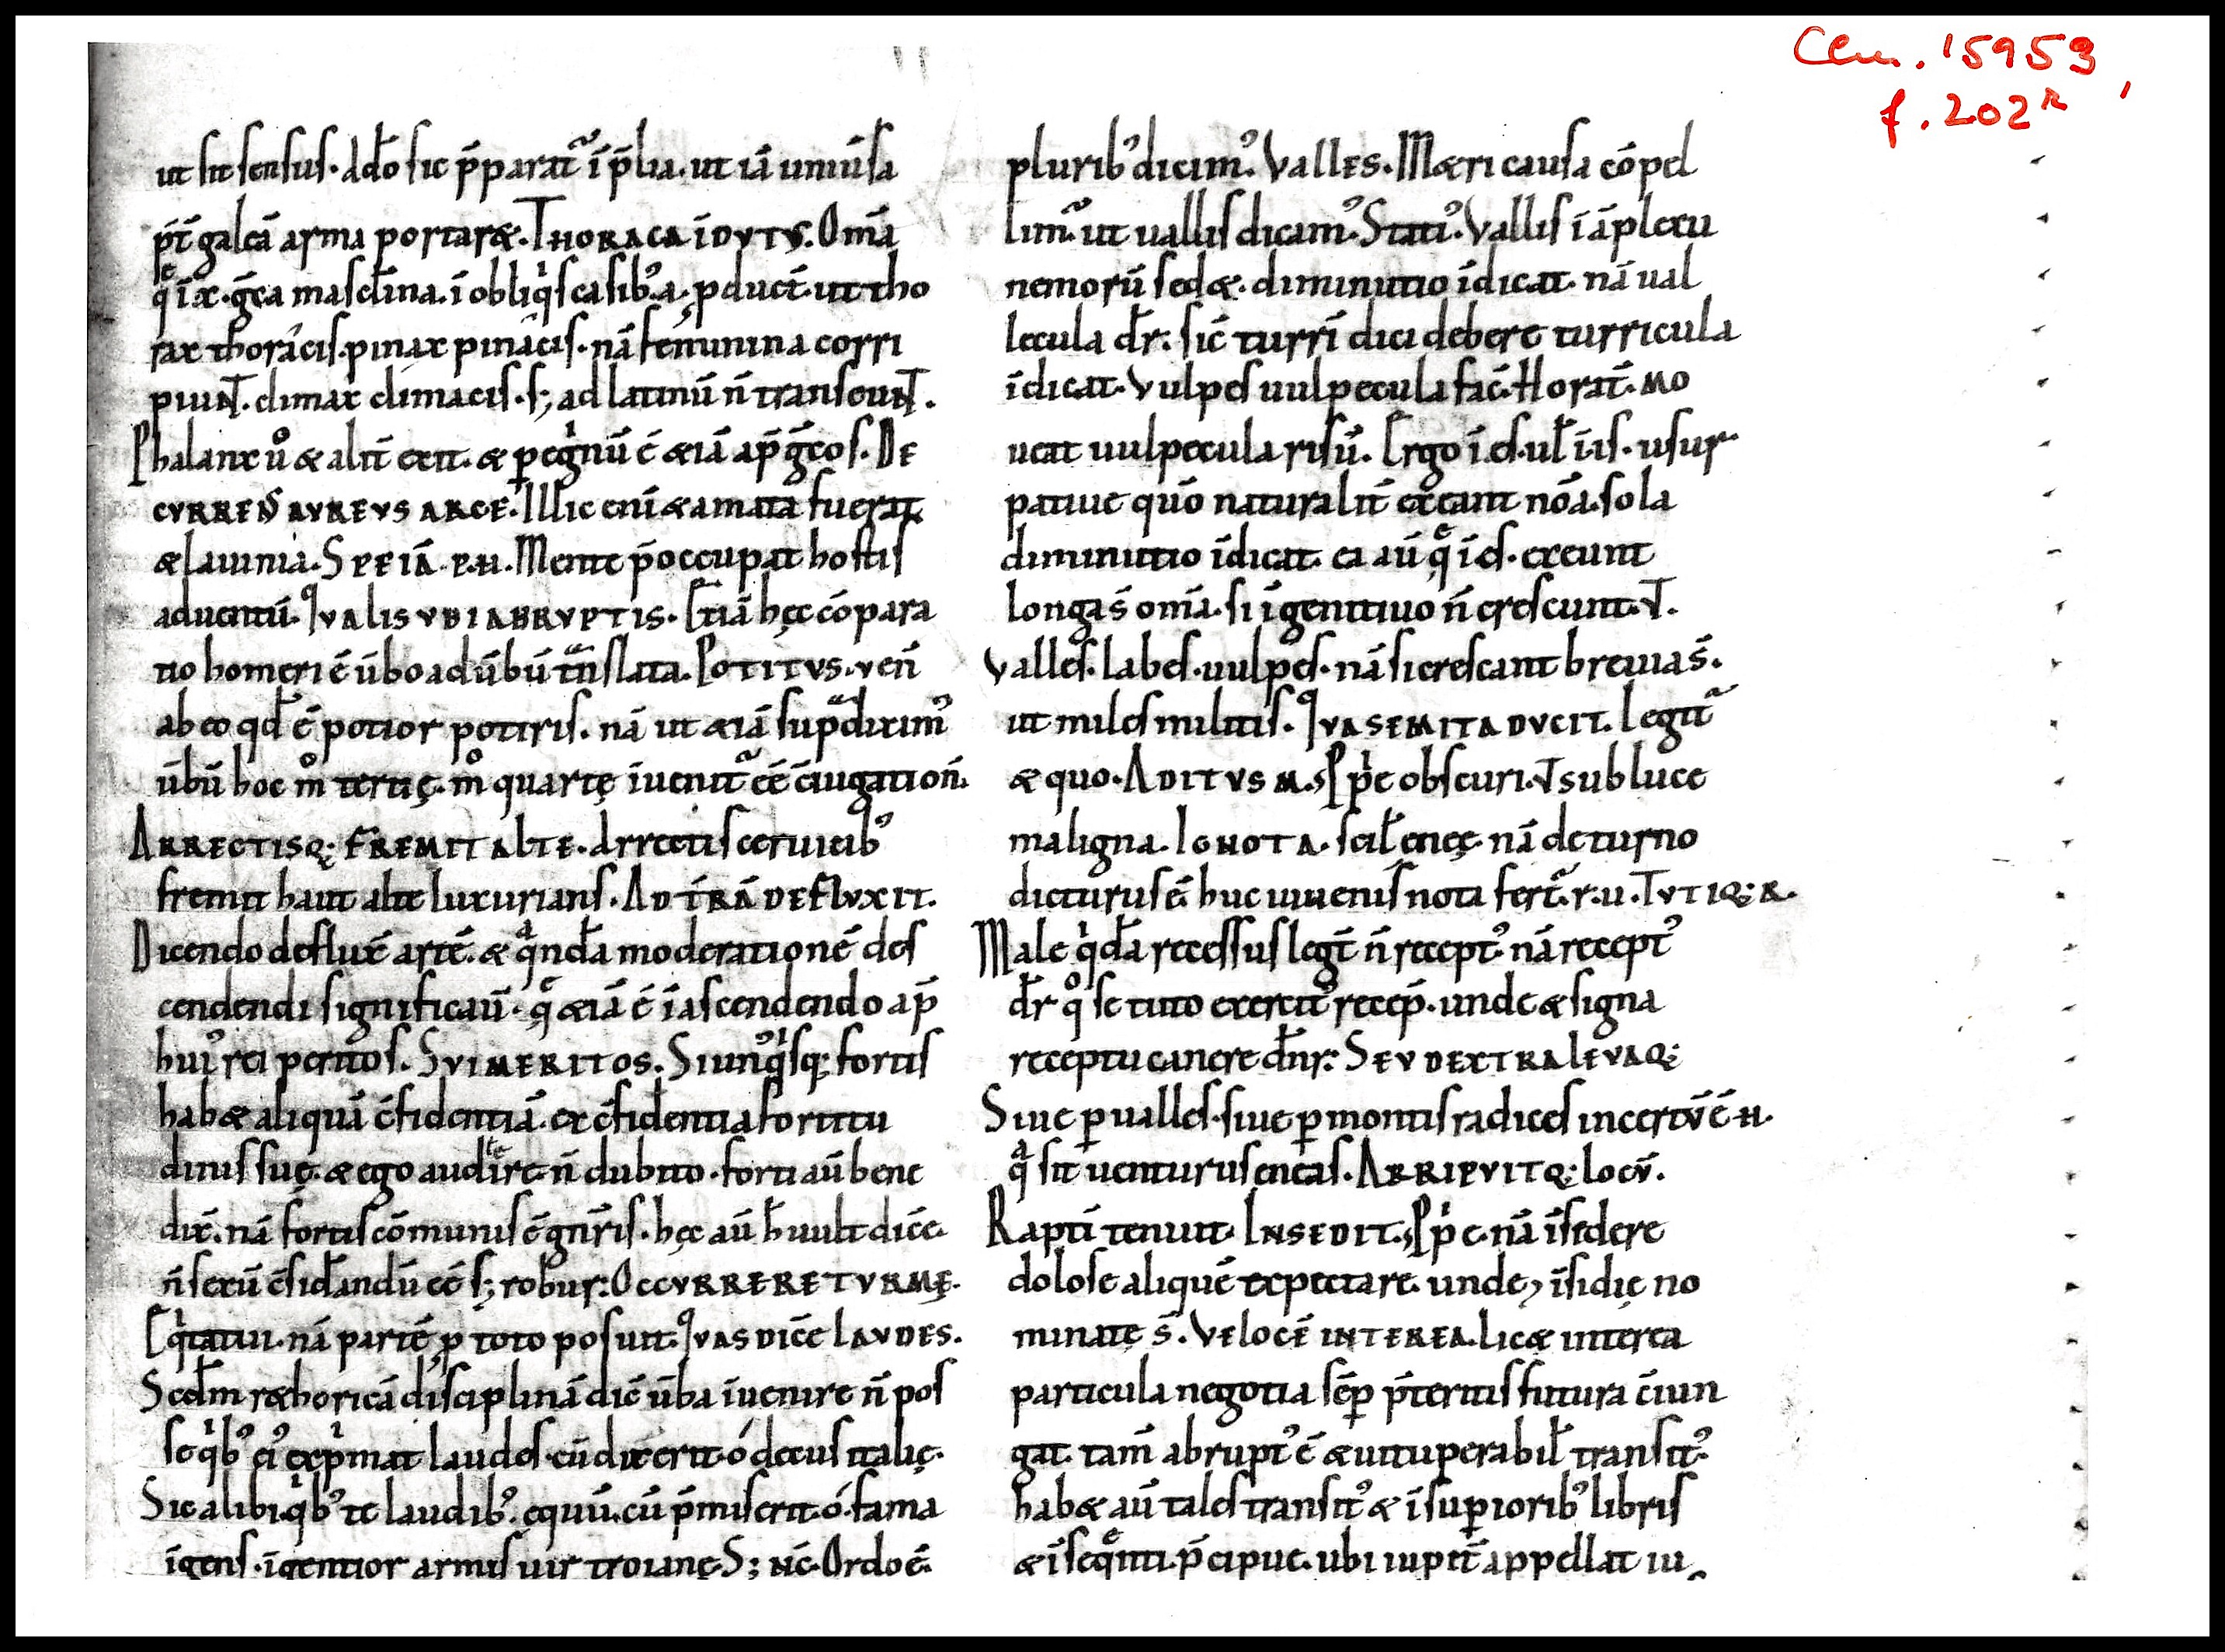 Clm. 15953,
f. 202ʳ
ut sit sensus. Adđo sic p̄parat᷑ i p̄lia. ut iā uniūsa
p̄t̄ galeā arma portaræ. THORACA ĪDVTVS. Om̄a
q̄ ī x. ḡca masclīna. ī obliq̍s casib᾽. a. ꝓduct̄. ut tho
rax thorácis. pinax pinácis. nā feminina corri
piuNT. climax climacis. s; ad latinū n̄ transeuNT.
Phalanx ů & alit̄ exit. & pegͥnū ē &iā ap̄ ḡcos. DE
CVRRENS AVREVS ARCE. Illic enī & amata fuerat
& lauinia. SPE IĀ. P. H. Mente p̄occupat hostis
aduentū. QVALIS VBI ABRVPTIS. Etiā hęc cōpara
tio homeri ē ūbo ad ūbū tn̄slata. POTITVS. VEN̄
ab eo qđ ē potior potiris. nā ut &iā supᵃdixim᾽
ūbū hoc m̊ tertię. m̊ quartę īuenit᷑ eē c̄iugation̄.
ARRECTISQ; FREMIT ALTE. Arrectis ceruicib᾽
fremit haut alte luxurians. AD ĪRĀ DEFLVXIT.
Dicendo defluxē artē. & qᵃndā moderationē des
cendendi significau̅. q̄ &iā ē ī ascendendo ap̄
hui᾽ rei peritos. SVI MERITOS. Si unᵒqͥsq; fortis
hab& aliquā c̄fidentiā. ex c̄fidentia fortitu
dinis suę. & ego audire n̄ dubito. forti aū bene
dix̄. nā fortis cōmunis ē gn̄ris. hęc aū h̄ uult dicē.
n̄ sexū c̄sidandū eē s; robur: OCCVRRERE TVRMĘ.
Eqͥtatui. nā partē ꝓ toto posuit. QVAS DICĒ LAVDES.
Scđm r&horicā disciplinā dic̄ ūba īuenire n̄ pos
se qͥb᾽ ei᾽ expͥmat laudes. cū dixerit. ó decus italię.
Sic alibi. qͥb᾽ te laudib᾽. ęquū. cū p̄miserit. ó. fama
īgens. īgentior armis uir troianę S; NC̄. Ordo ē.
plurib᾽ dicim᾽. VALLES. M&ri causa cōpel
lim᷑ ut uallis dicam᾽. Stati᾽. Vallis ī āplexu
nemorū sed&. diminutio īdicat. nā ual
lecula đr. sic̄ turrī dici debere turricula
īdicat. Vulpes uulpecula fac̄. Horat̄. MO
ueat uulpecula risū. Ergo ī. es. ul ī. is. usur
patiue quō naturalit̄ exeant nō a. sola
diminutio īdicat. ea aū q̄ ī es. exeunt
longa s̄ om̄a. si ī genitiuo n̄ crescunt. VT.
Valles. labes. uulpes. nā si crescant breuia s̄.
ut miles militis. QVA SEMITA DVCIT. Legit᷑
& quo. ADITVS M. Ppͥe obscuri. VT sub luce
maligna. IGNOTA. scil enęę. nā de turno
dicturus ē. huc iuuenis nota fert᷑. r. u. TVTIQ; R.
Male qͥdā recessus legt̄ n̄ recept᾽. nā recept᾽
đr qᵒ se tuto exercit᾽ recep̄. unde & signa
receptu canere dn̄r: SEV DEXTRA LEVAQ;
Siue ꝑ ualles. siue ꝑ montis radices incertū ē. H.
qᵃ sit uenturus eneas. ARRIPVITQ; LOCV̄.
Raptī tenuit. INSEDIT. Ppͥe. nā īsedere
dolose aliquē expectare. unde, īsidię no
minatę s̄. VELOCĒ INTEREA. Lic& interea
particula negotia sēꝑ p̄teritis futura c̄iun
gat. tam̄ abrupt᾽ ē & uituperabil transit᾽
hab& aū tales transit᾽ & ī superiorib᾽ libris
& ī seqn̄ti. p̄cipue. ubi iupit̄ appellat iu